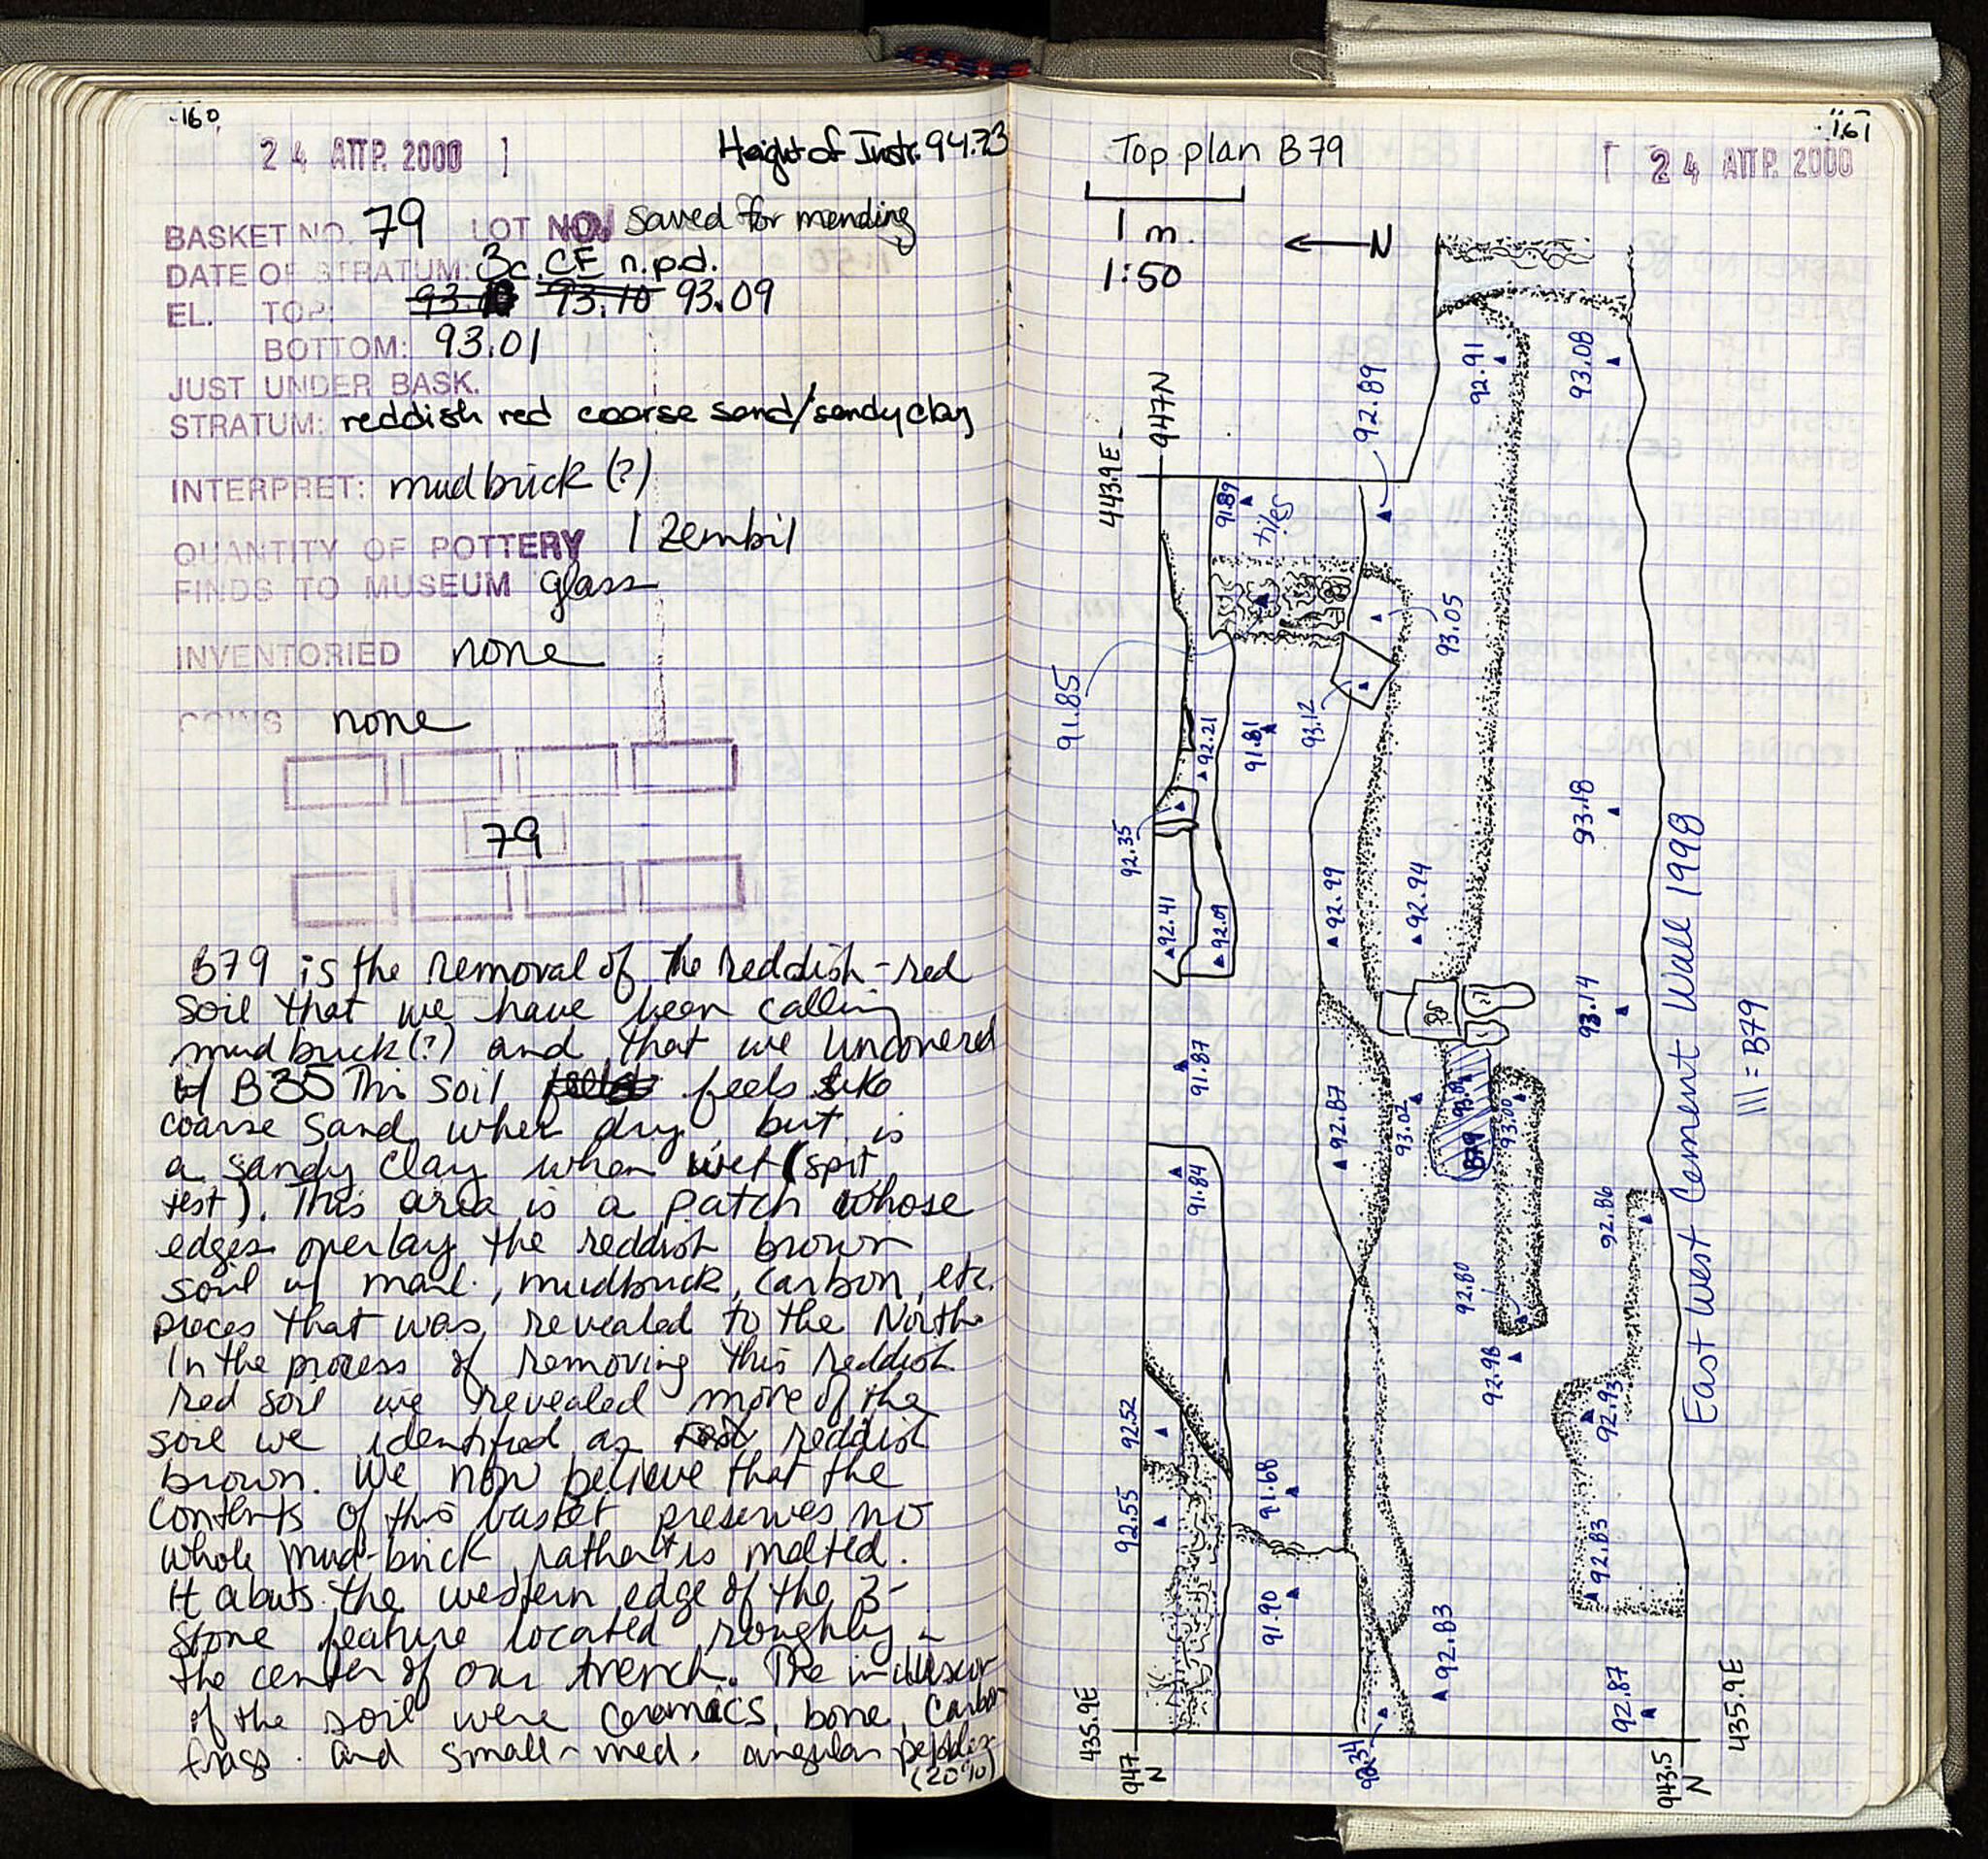 160
24 ΑΠΡ. 2000
Height of Instr. 94.73
BASKET NO. 79 LOT NO. saved for mending
DATE OF STRATUM: 3c. CE n.p.d.
EL. TOP: 93.10 93.10 93.09
BOTTOM: 93.01
JUST UNDER BASK.
STRATUM: reddish red coarse sand/sandy clay
INTERPRET: mudbrick (?)
QUANTITY OF POTTERY 1 Zembil
FINDS TO MUSEUM glass
INVENTORIED none
COINS none
79
B79 is the removal of the reddish-red
soil that we have been calling
mudbrick(?) and that we uncovered
w/ B35 This soil feels like
coarse sand when dry but is
a sandy clay when wet (spit
test). This area is a patch whose
edges overlay the reddish brown
soil w/ marl, mudbrick, carbon, etc.
pieces that was revealed to the North.
In the process of removing this reddish
red soil we revealed more of the
soil we identified as reddish
brown. We now believe that the
contents of this basket preserves no
whole mud-brick rather it is melted.
It abuts the western edge of the 3-
stone feature located roughly in
the center of our trench. The inclusions
of the soil were ceramics, bone, carbon
frags. and small-med. angular pebbles
(20%)
161
Top plan B79
24 ΑΠΡ. 2000
1 m.
1:50
N
947N
443.9E
92.89
92.91
93.08
91.89
tiles
93.05
91.85
93.12
92.21
91.81
92.35
93.18
92.41
92.09
92.99
92.94
93.14
91.87
92.87
93.02
B79
93.01
93.00
East West Cement Wall 1998
||| = B79
91.84
92.86
92.80
92.98
92.93
92.52
92.55
91.68
91.90
92.83
92.83
92.87
435.9E
947
N
92.34
943.5
N
435.9E